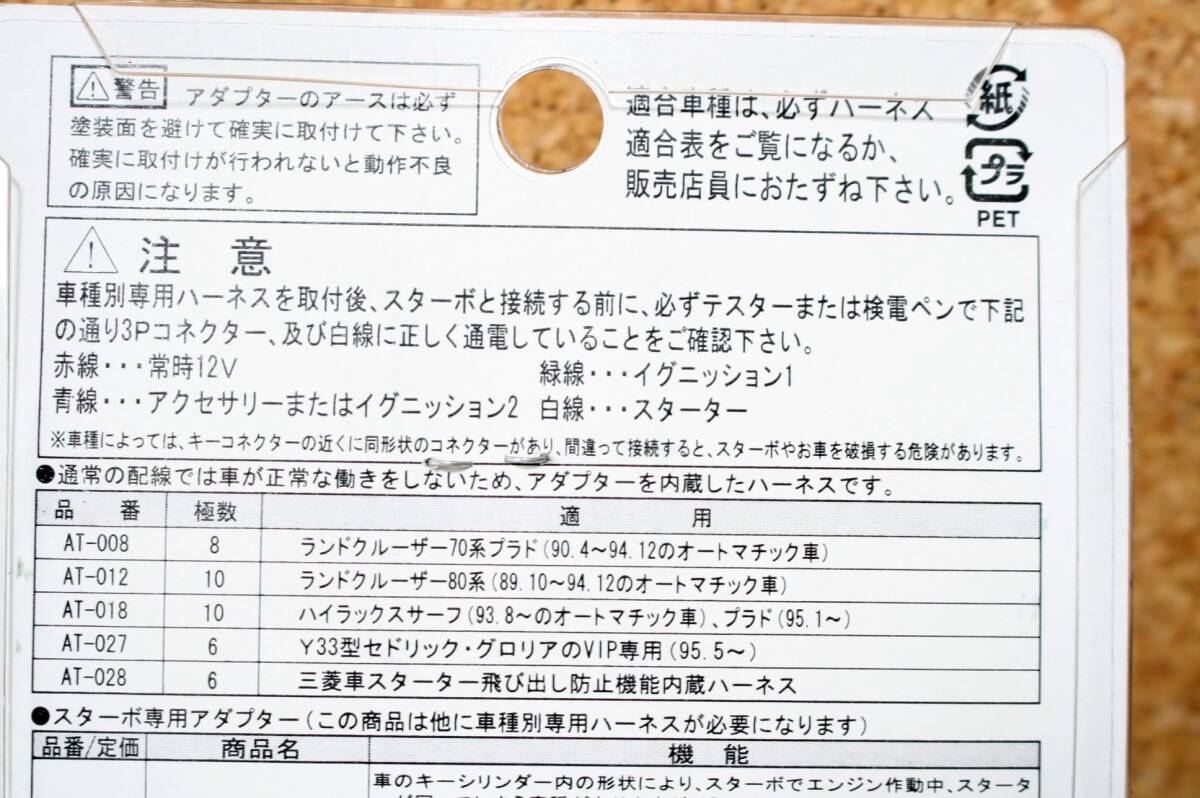 警告 アダプターのアースは必ず
塗装面を避けて確実に取付けて下さい。
確実に取付けが行われないと動作不良
の原因になります。
適合車種は、必ずハーネス
適合表をご覧になるか、
販売店員におたずね下さい。
紙
プラ
PET
注 意
車種別専用ハーネスを取付後、スターボと接続する前に、必ずテスターまたは検電ペンで下記
の通り3Pコネクター、及び白線に正しく通電していることをご確認下さい。
赤線・・・常時12V 緑線・・・イグニッション1
青線・・・アクセサリーまたはイグニッション2 白線・・・スターター
※車種によっては、キーコネクターの近くに同形状のコネクターがあり、間違って接続すると、スターボやお車を破損する危険があります。
●通常の配線では車が正常な働きをしないため、アダプターを内蔵したハーネスです。
品 番 極数 適 用
AT-008 8 ランドクルーザー70系プラド(90.4〜94.12のオートマチック車)
AT-012 10 ランドクルーザー80系(89.10〜94.12のオートマチック車)
AT-018 10 ハイラックスサーフ(93.8〜のオートマチック車)、プラド(95.1〜)
AT-027 6 Y33型セドリック・グロリアのVIP専用(95.5〜)
AT-028 6 三菱車スターター飛び出し防止機能内蔵ハーネス
●スターボ専用アダプター(この商品は他に車種別専用ハーネスが必要になります)
品番/定価 商品名 機 能
車のキーシリンダー内の形状により、スターボでエンジン作動中、スタータ